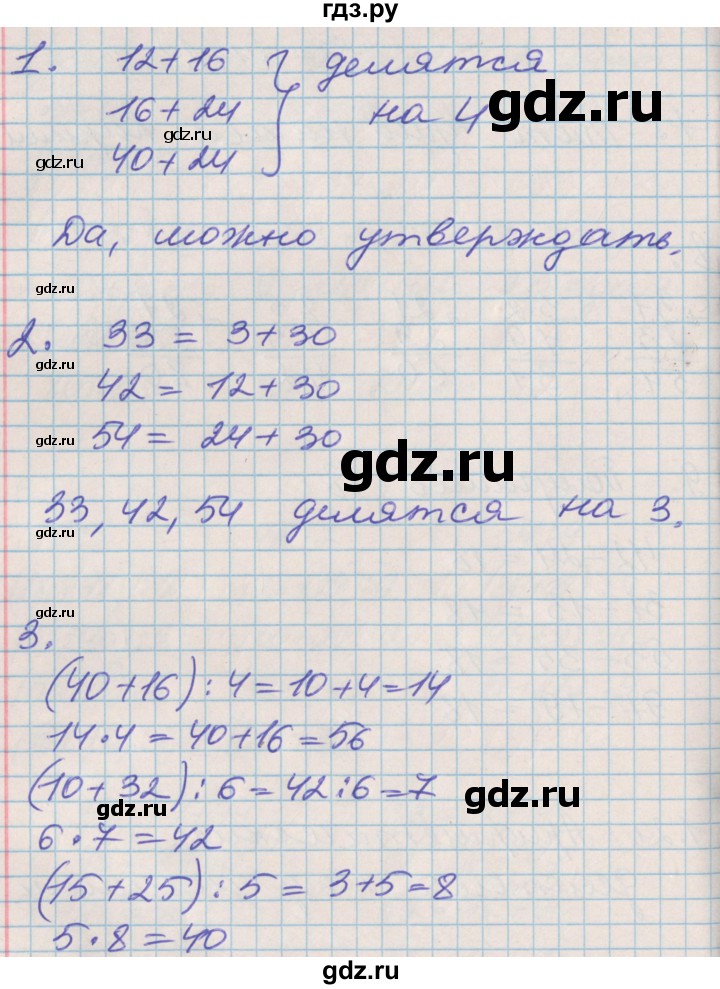 гдз.ру
1. 12+16 } делятся
16+24 на 4
40+24
gdz.ru
gdz.ru
gdz.ru
Да, можно утверждать.
gdz.ru
2. 33 = 3+30
gdz.ru
42 = 12+30
54 = 24+30
gdz.ru
gdz.ru
33, 42, 54 делятся на 3.
gdz.ru
gdz.ru
3.
(40+16):4=10+4=14
14·4=40+16=56
(10+32):6=42:6=7
gdz.ru
gdz.ru
6·7=42
(15+25):5=3+5=8
5·8=40
gdz.ru
gdz.ru